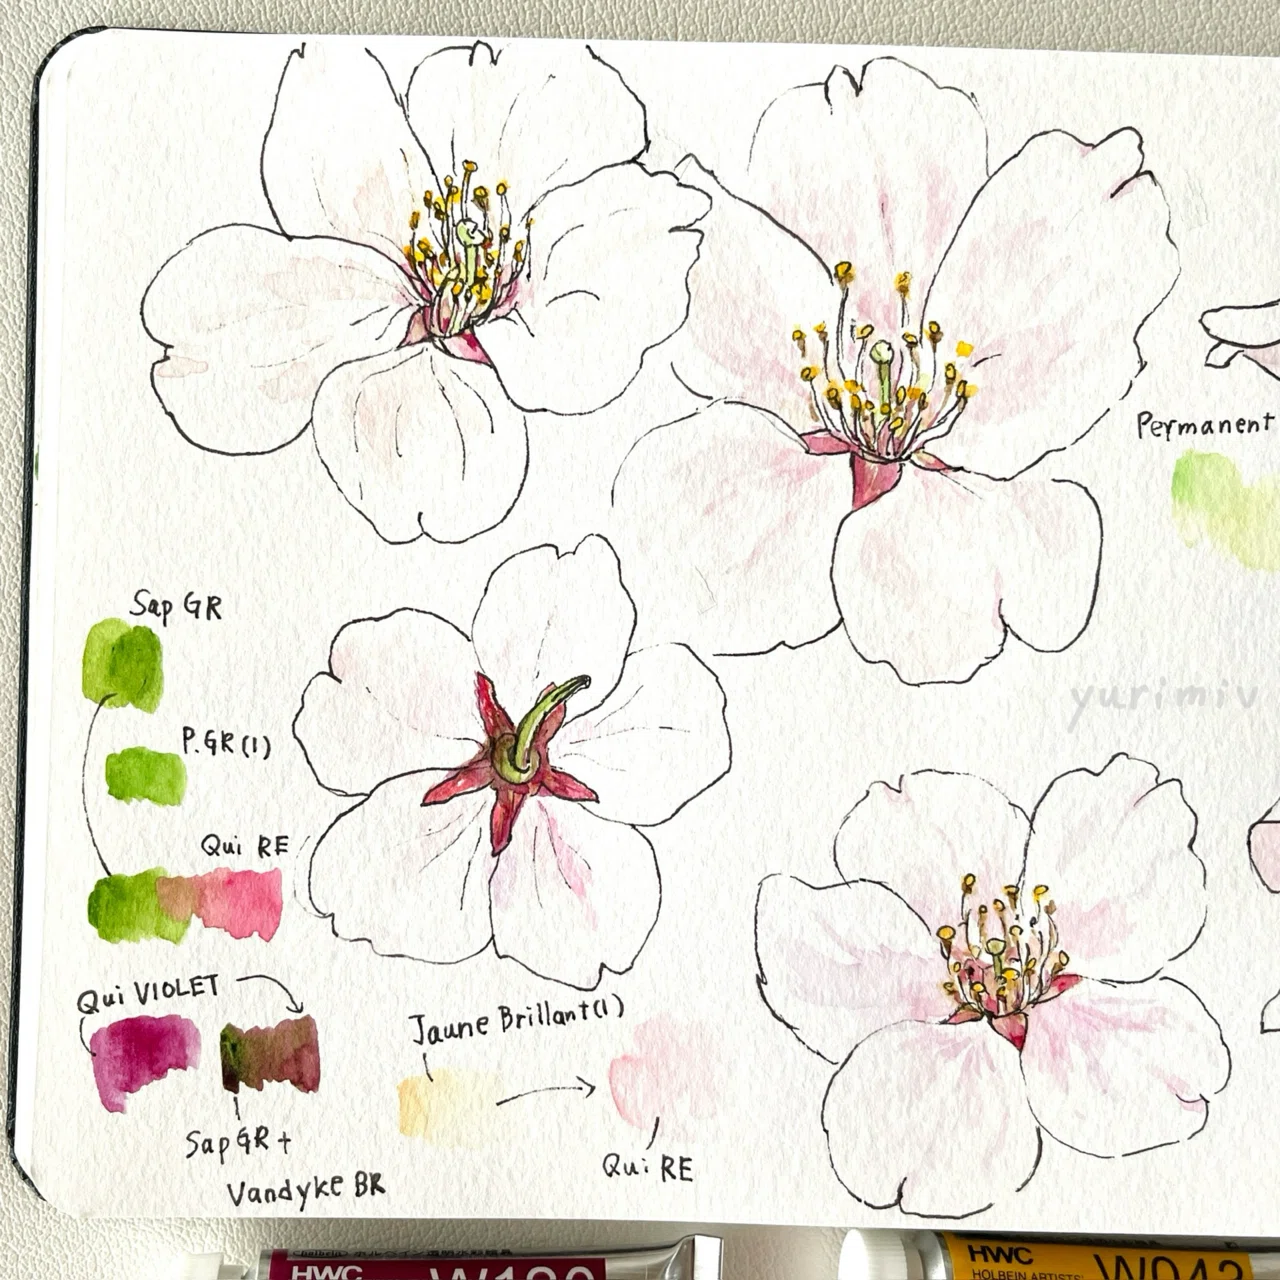 Permanent
Sap GR
P.GR(1)
Qui RE
Qui VIOLET
Sap GR +
Vandyke BR
Jaune Brillant(1)
Qui RE
yurimiv
HWC
HWC
HOLBEIN ARTISTS'
W043